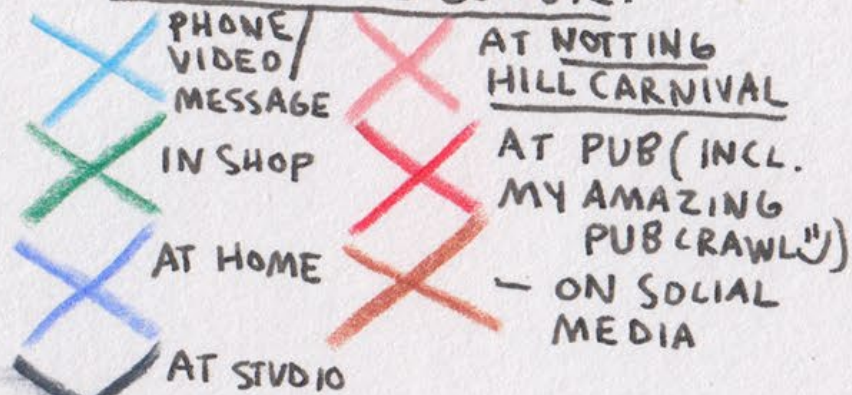 PHONE/
VIDEO/
MESSAGE
IN SHOP
AT HOME
AT STUDIO
AT NOTTING
HILL CARNIVAL
AT PUB (INCL.
MY AMAZING
PUB CRAWL)
– ON SOCIAL
MEDIA